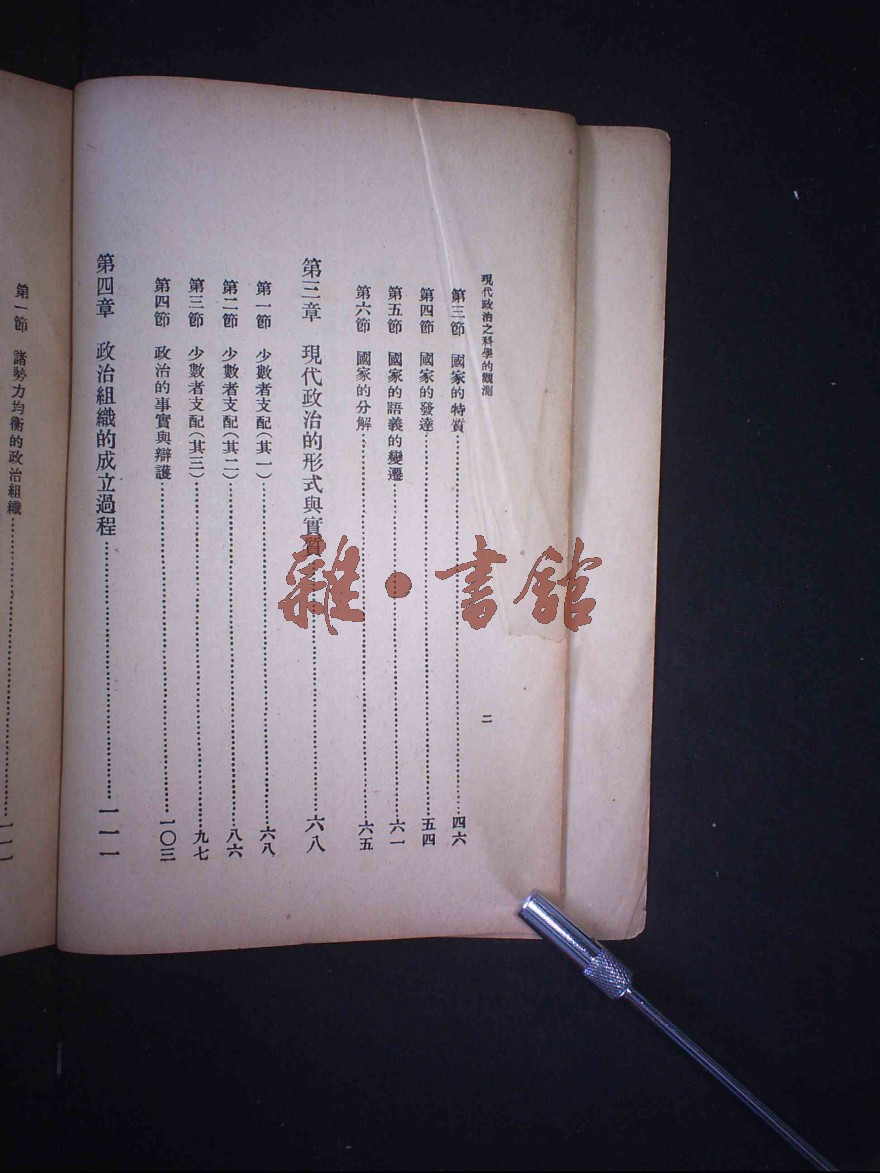 現代政治之科學的觀測
二
第三節 國家的特質……四六
第四節 國家的發達……五四
第五節 國家的語義的變遷……六一
第六節 國家的分解……六五
第三章 現代政治的形式與實質……六八
第一節 少數者支配(其一)……六八
第二節 少數者支配(其二)……八六
第三節 少數者支配(其三)……九七
第四節 政治的事實與辯護……一〇三
第四章 政治組織的成立過程……一一一
第一節 諸勢力均衡的政治組織……一一一
雜·書館